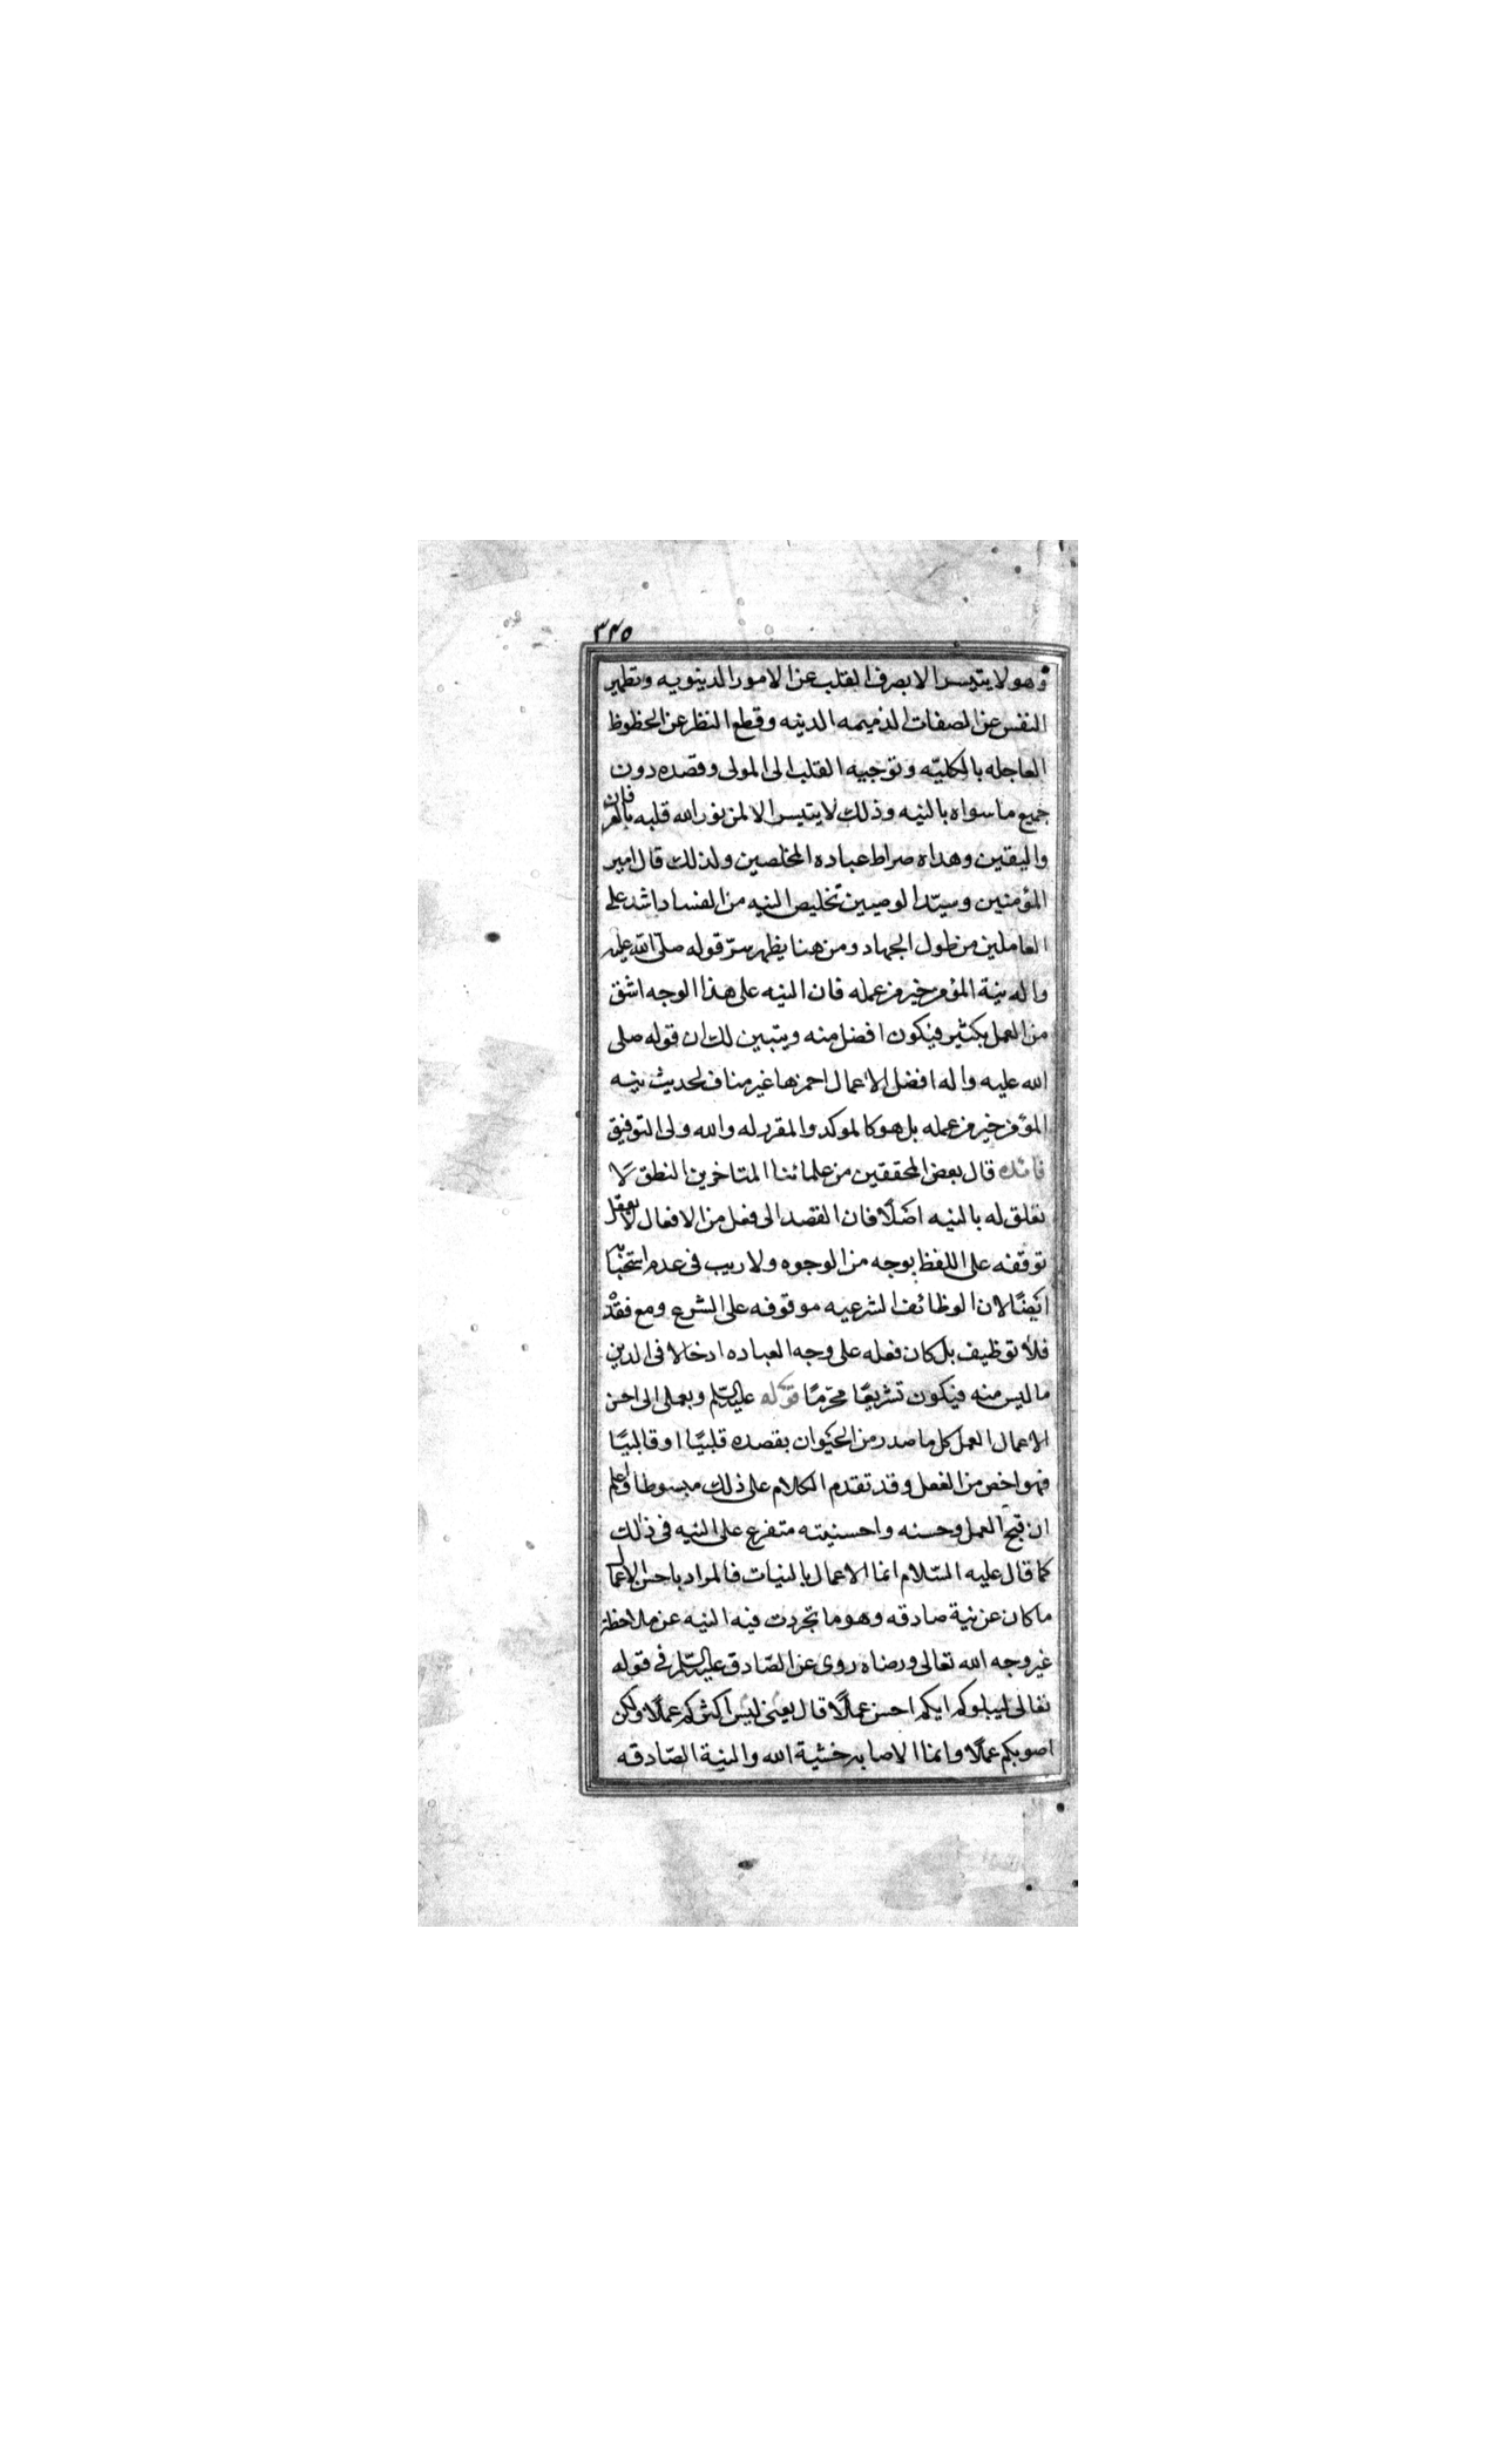 ٣٤٥
وهو لا يتيسر الا بصرف القلب عن الامور الدينويه وتطهير
النفس عن الصفات الذميمه الدينه وقطع النظر عن الحظوظ
العاجله بالكليّه وتوجيه القلب الى المولى وقصده دون
جميع ما سواه بالنيه وذلك لا يتيسر الا لمن نور الله قلبه بالعرفان
واليقين وهداه صراط عباده المخلصين ولذلك قال امير
المؤمنين وسيّد الوصيين تخليص النيه من الفساد اشد على
العاملين من طول الجهاد ومن هنا يظهر سرّ قوله صلى الله عليه
واله نية المؤمن خير من عمله فان النيه على هذا الوجه اشق
من العمل بكثير فيكون افضل منه ويتبين لك ان قوله صلى
الله عليه واله افضل الاعمال احمزها غير مناف لحديث نيه
المؤمن خير من عمله بل هو كالموكد والمقرر له والله ولى التوفيق
فائده قال بعض المحققين من علمائنا المتاخرين النطق لا
تعلق له بالنيه اصلًا فان القصد الى فعل من الافعال لا يعقل
توقفه على اللفظ بوجه من الوجوه ولا ريب فى عدم استحبابه
ايضًا لان الوظائف الشرعيه موقوفه على الشرع ومع فقده
فلا توظيف بل كان فعله على وجه العباده ادخالا فى الدين
ما ليس منه فيكون تشريعًا محرّمًا قوله عليه السلم وبعملى الى احسن
الاعمال العمل كل ما صدر من الحيوان بقصده قلبيًا او قالبيًا
فهو اخص من الفعل وقد تقدم الكلام على ذلك مبسوطا واعلم
ان قبح العمل وحسنه واحسنيته متفرع على النيه فى ذلك
كما قال عليه السّلام انما الاعمال بالنيات فالمراد باحسن الاعمال
ما كان عن نية صادقه وهو ما تجردت فيه النيه عن ملاحظة
غير وجه الله تعالى ورضاه روى عن الصّادق عليه السّلم فى قوله
تعالى ليبلوكم ايكم احسن عملًا قال يعنى ليس اكثركم عملًا ولكن
اصوبكم عملًا وانما الاصابه خشية الله والنية الصّادقه